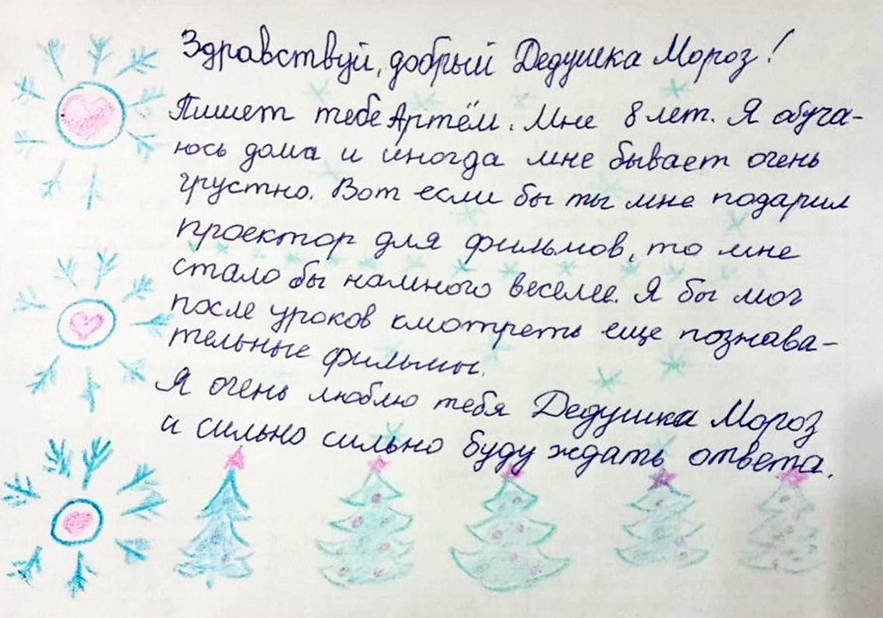 Здравствуй, добрый Дедушка Мороз!
Пишет тебе Артём. Мне 8 лет. Я обуча-
юсь дома и иногда мне бывает очень
грустно. Вот если бы ты мне подарил
проектор для фильмов, то мне
стало бы намного веселее. Я бы мог
после уроков смотреть еще познава-
тельные фильмы.
Я очень люблю тебя Дедушка Мороз
и сильно сильно буду ждать ответа.